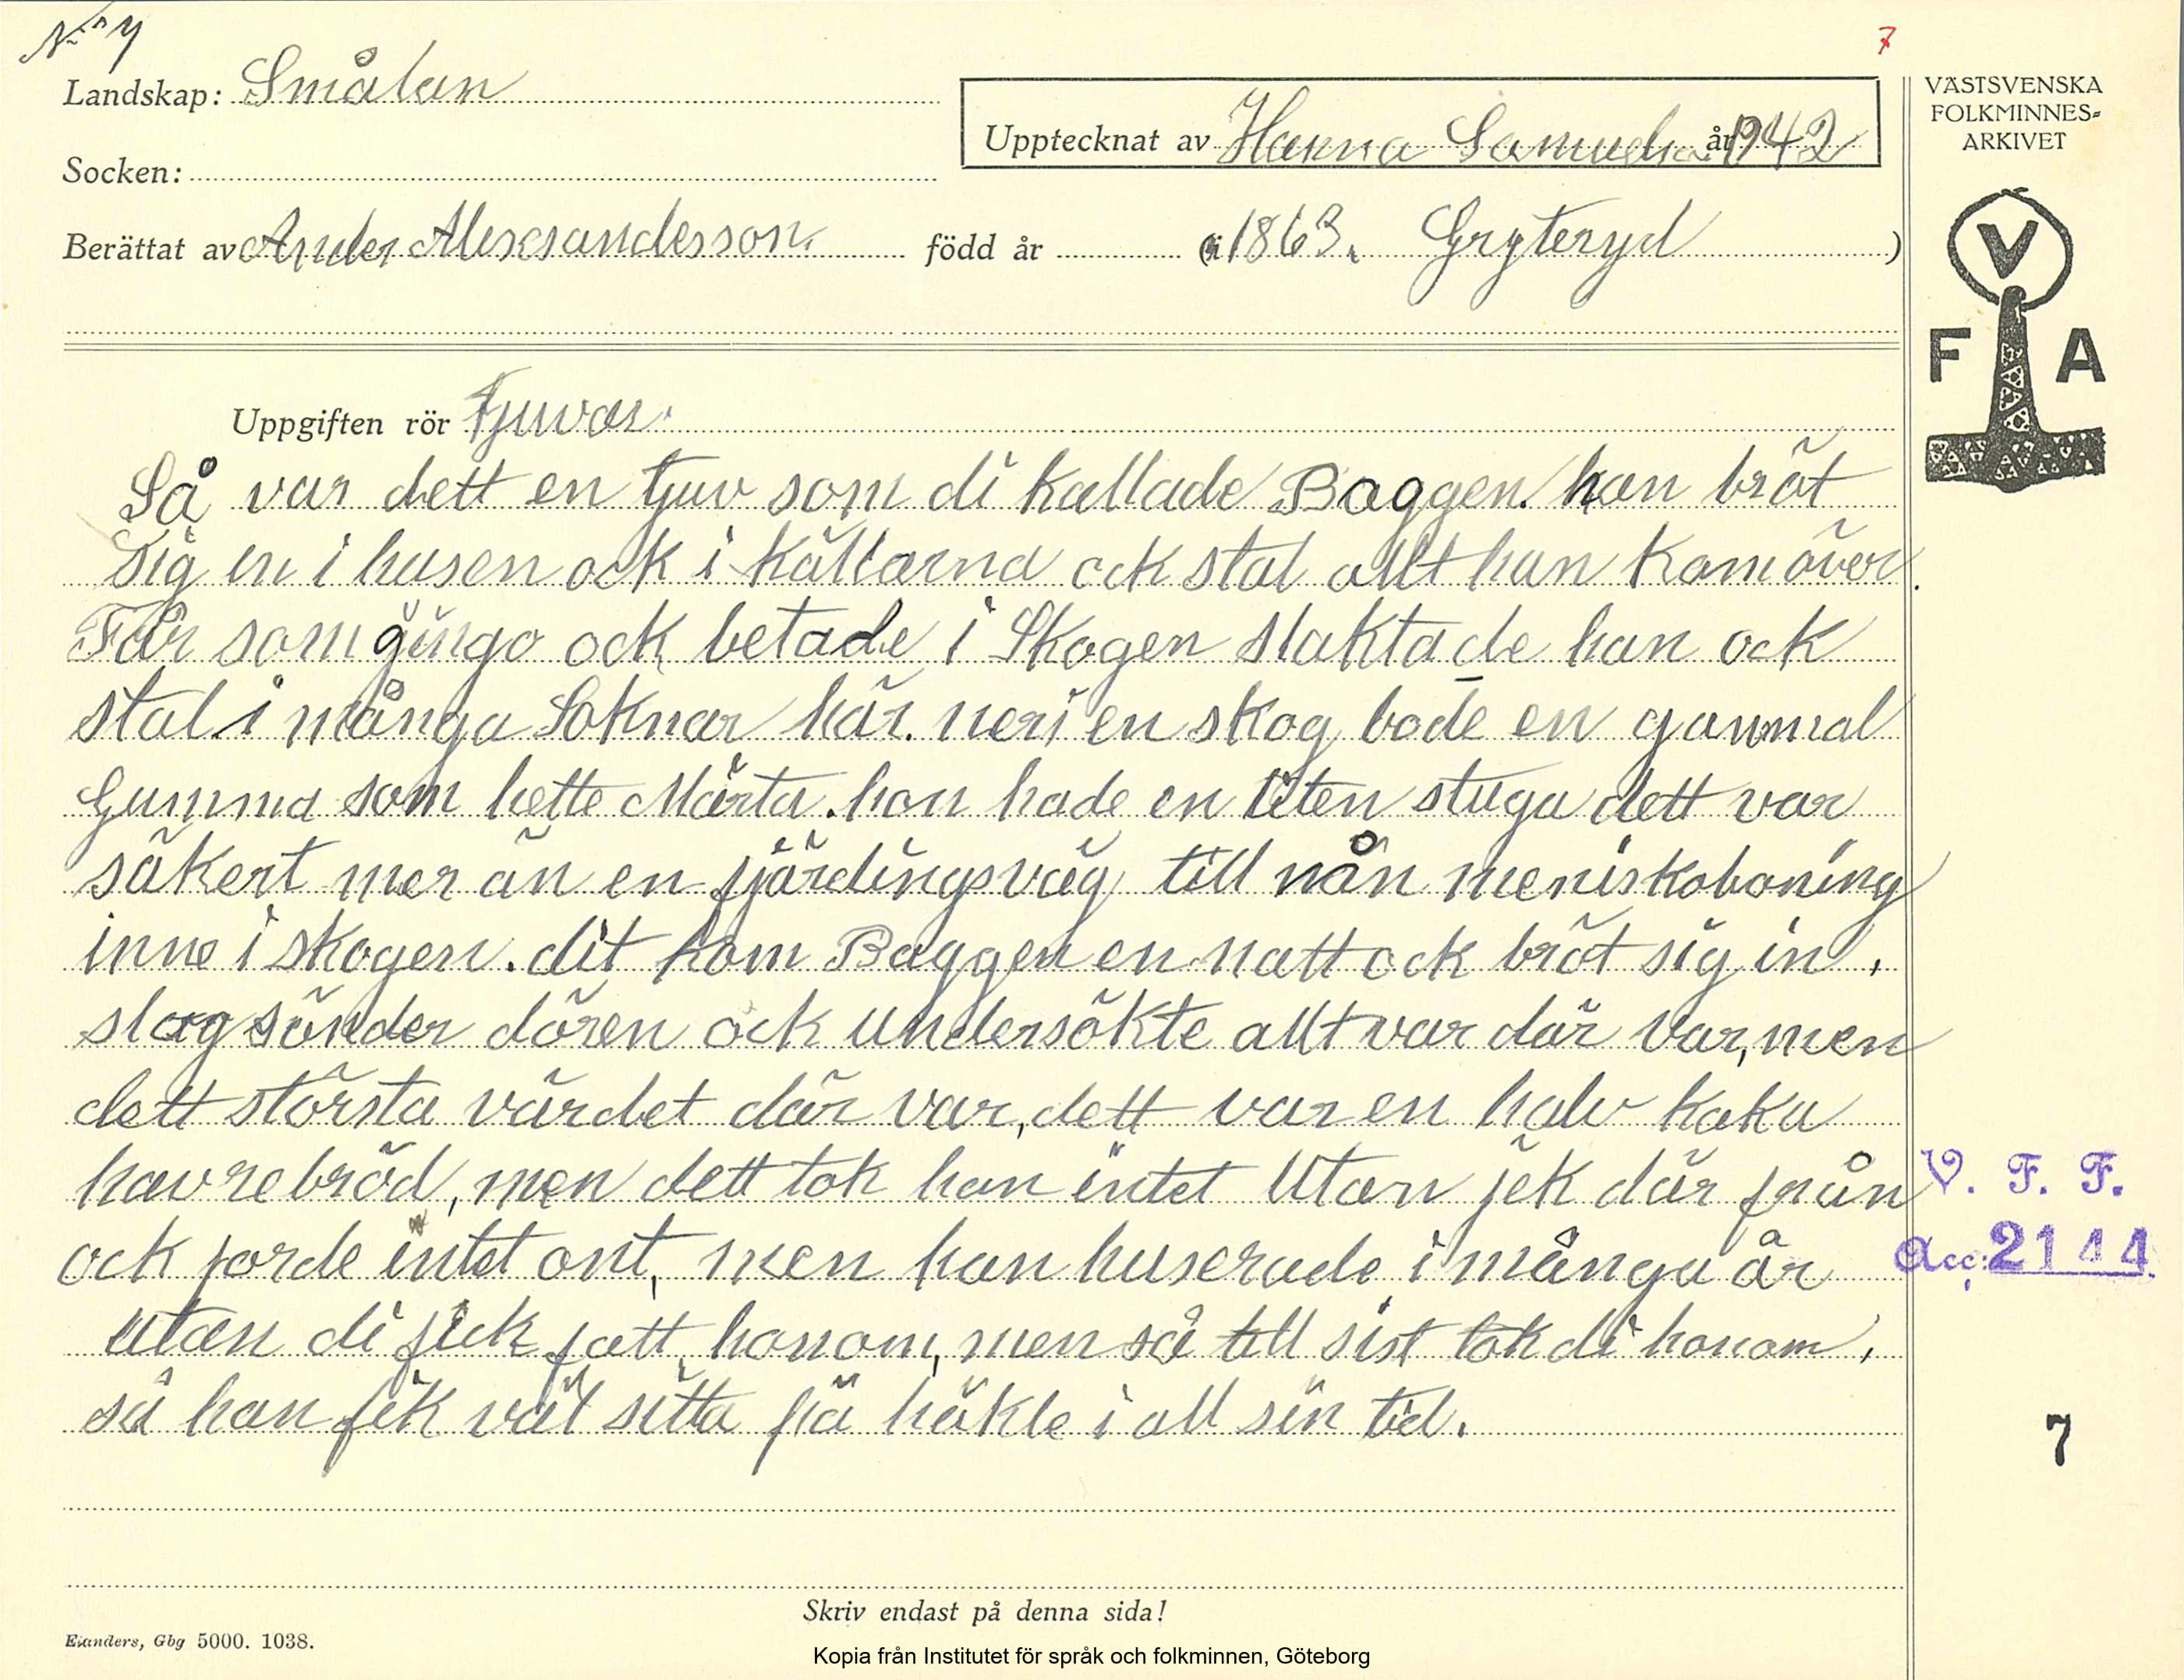 No 7
7
Landskap: Smålan
Upptecknat av Hanna Samuels. år 1942
Socken:
Berättat av Ander Alexsandersson. född år (i 1863. Gryteryd)
VÄSTSVENSKA
FOLKMINNES-
ARKIVET
V
F A
Uppgiften rör Tjuvar.
Så var dett en tjuv som di kallade Baggen. han bröt
sig en i husen ock i källarna ock stal allt han kom över.
Får som gingo ock betade i Skogen slaktade han ock
stal i många Soknar här. neri en skog bode en gammal
Gumma som hette Märta. hon hade en liten stuga dett var
säkert mer än en fjärdingsväg till nån meniskoboning
inne i skogen. dit kom Baggen en natt ock bröt sig in.
slog sönder dören ock undersökte allt var där var, men
dett största värdet där var, dett var en halv kaka
havrebröd, men dett tok han intet Utan jek där från
ock jorde intet ont, men han huserade i många år
utan di fick fatt honom, men så till sist tok di honom.
så han fik väl sitta på häkte i all sin tid.
V. F. F.
Acc: 2144
7
Skriv endast på denna sida!
Elanders, Gbg 5000. 1038.
Kopia från Institutet för språk och folkminnen, Göteborg